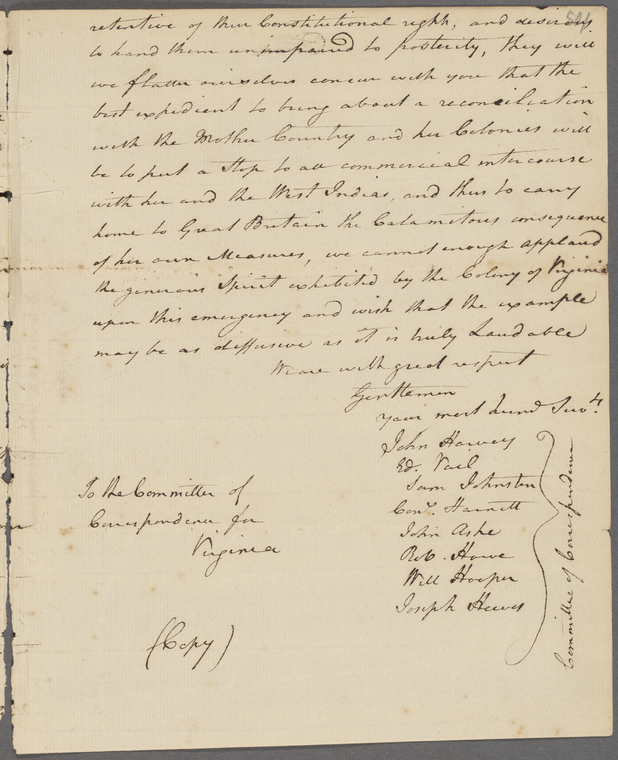 retentive of their Constitutional right, and desirous
to hand them unimpaired to posterity, they will
we flatter ourselves concur with you that the
best expedient to bring about a reconciliation
with the Mother Country and her Colonies will
be to put a Stop to all commercial intercourse
with her and the West Indias, and thus to carry
home to Great Britain the Calamitous consequence
of her own Measures, we cannot enough applaud
the generous Spirit exhibited by the Colony of Virginia
upon this emergency and wish that the example
may be as diffusive as it is truly Laudable
We are with great respect
Gentlemen
Your most humd Servts.
John Harvey
Ed. Vail
Sam Johnston
Corns. Harnett
John Ashe
Rob. Howe
Will Hooper
Joseph Hewes
Committee of Correspondence
To the Committee of
Correspondence for
Virginia
(Copy)